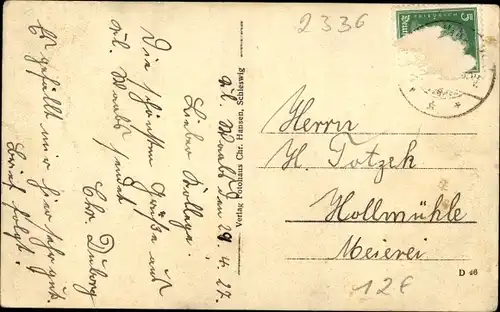 2336
Kl. Waabs den 29.4.27.
Lieber Kollege.
Die schönsten Grüße aus
Kl. Waabs sendet
Chr.
Es gefällt mir hier sehr gut.
Brief folgt!
Verlag Fotohaus Chr. Hansen, Schleswig
Herrn
H. Totzek
Hollmühle
Meierei
D 46
12€
5